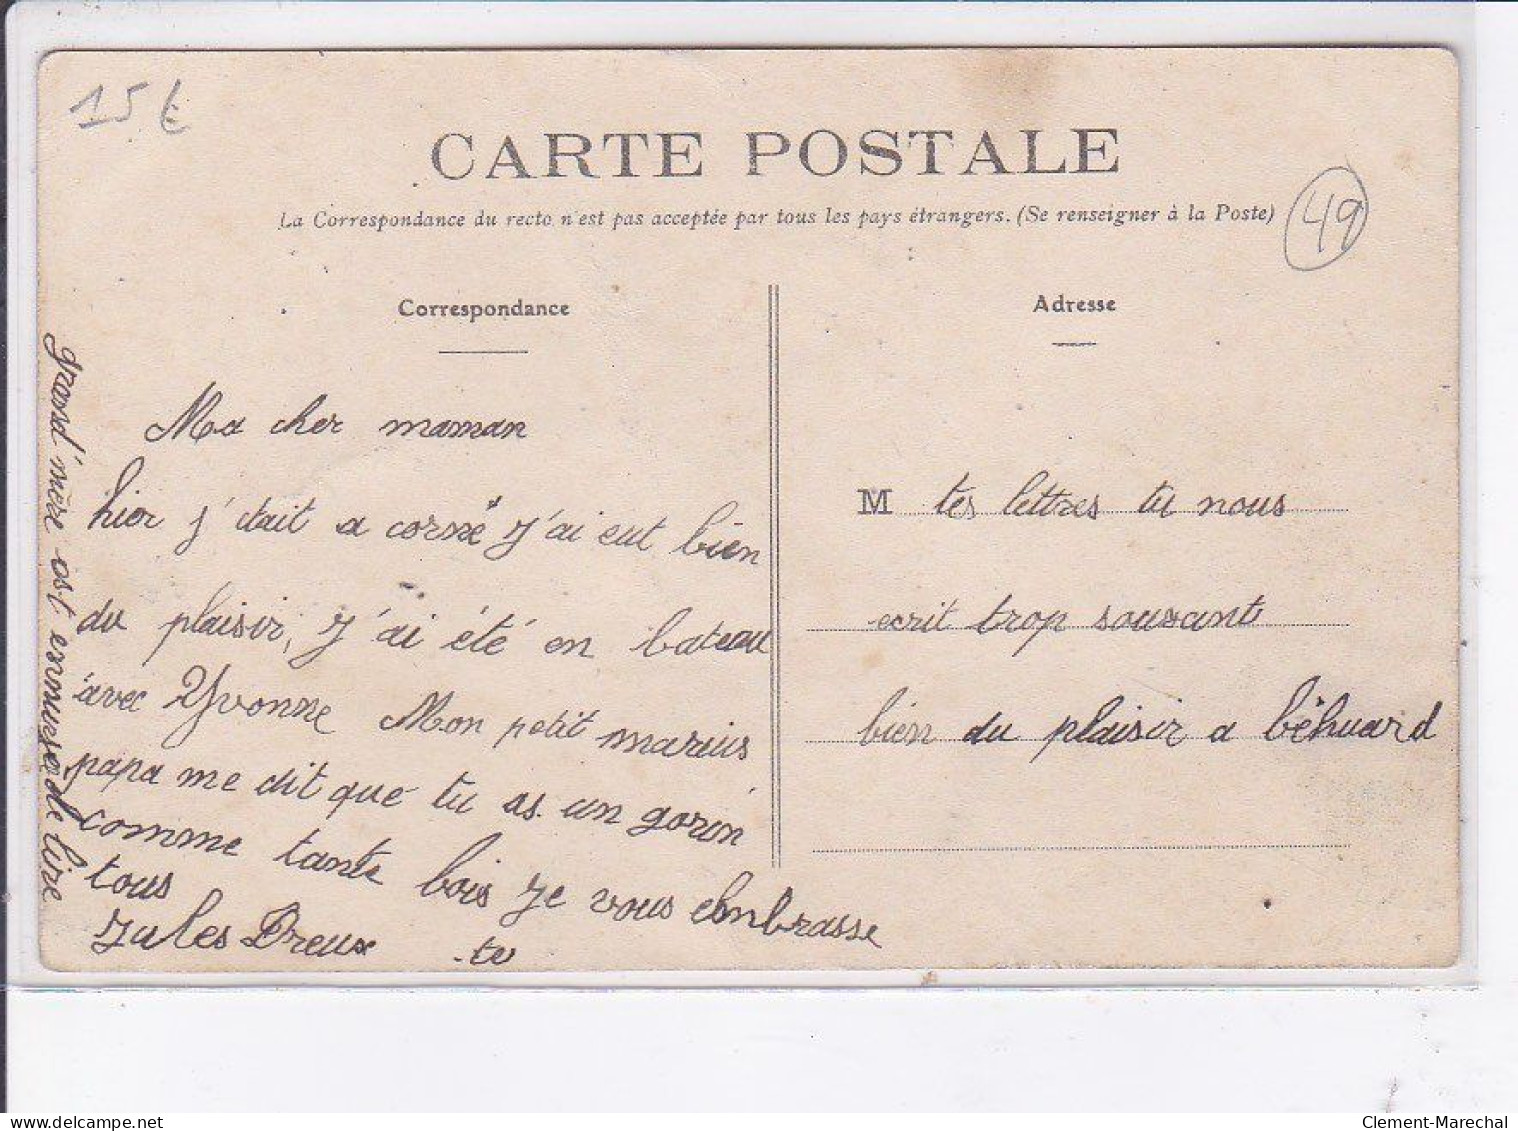 15 €
CARTE POSTALE
La Correspondance du recto n'est pas acceptée par tous les pays étrangers. (Se renseigner à la Poste)
49
Correspondance
Ma cher maman
hier j'était a corné J'ai eut bien
du plaisir, J'ai été en bateau
avec Yvonne Mon petit marius
papa me dit que tu as un gorin
comme tante bois Je vous embrasse
tous
Jules Dreux
te
grand'mère est ennuyse de lire
Adresse
M tes lettres tu nous
ecrit trop souvant
bien du plaisir a béhuard
Clement-Marechal
www.delcampe.net